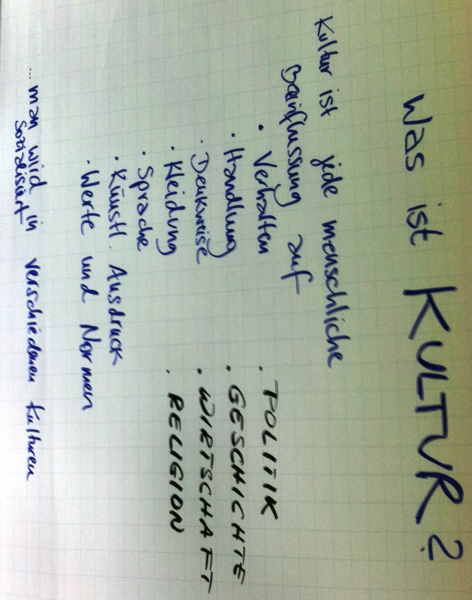 Was ist KULTUR?
Kultur ist jede menschliche
Beinflussung auf
• Verhalten
• Handlung
• Denkweise
• Kleidung
• Sprache
• Künstl. Ausdruck
• Werte und Normen
• POLITIK
• GESCHICHTE
• WIRTSCHAFT
• RELIGION
... man wird in verschiedenen Kulturen
sozialisiert